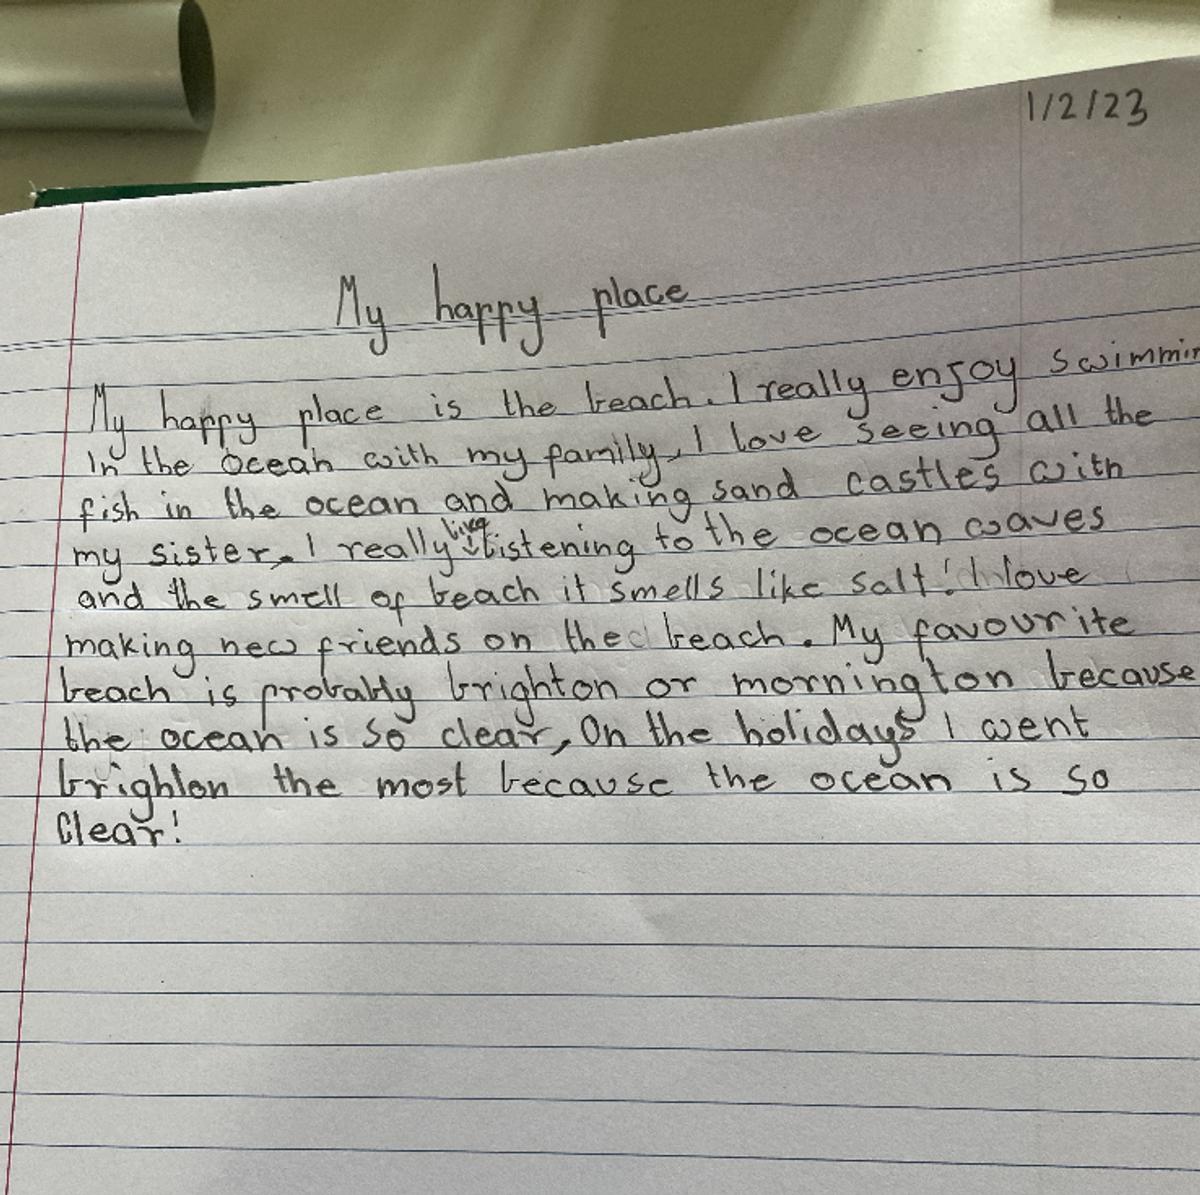 1/2/23
My happy place
My happy place is the beach. I really enjoy swimmin
In the ocean with my family, I love seeing all the
fish in the ocean and making sand castles with
my sister. I really like listening to the ocean waves
and the smell of beach it smells like salt! I love
making new friends on the beach. My favourite
beach is probably brighton or mornington because
the ocean is so clear, On the holidays I went
brighton the most because the ocean is so
Clear!